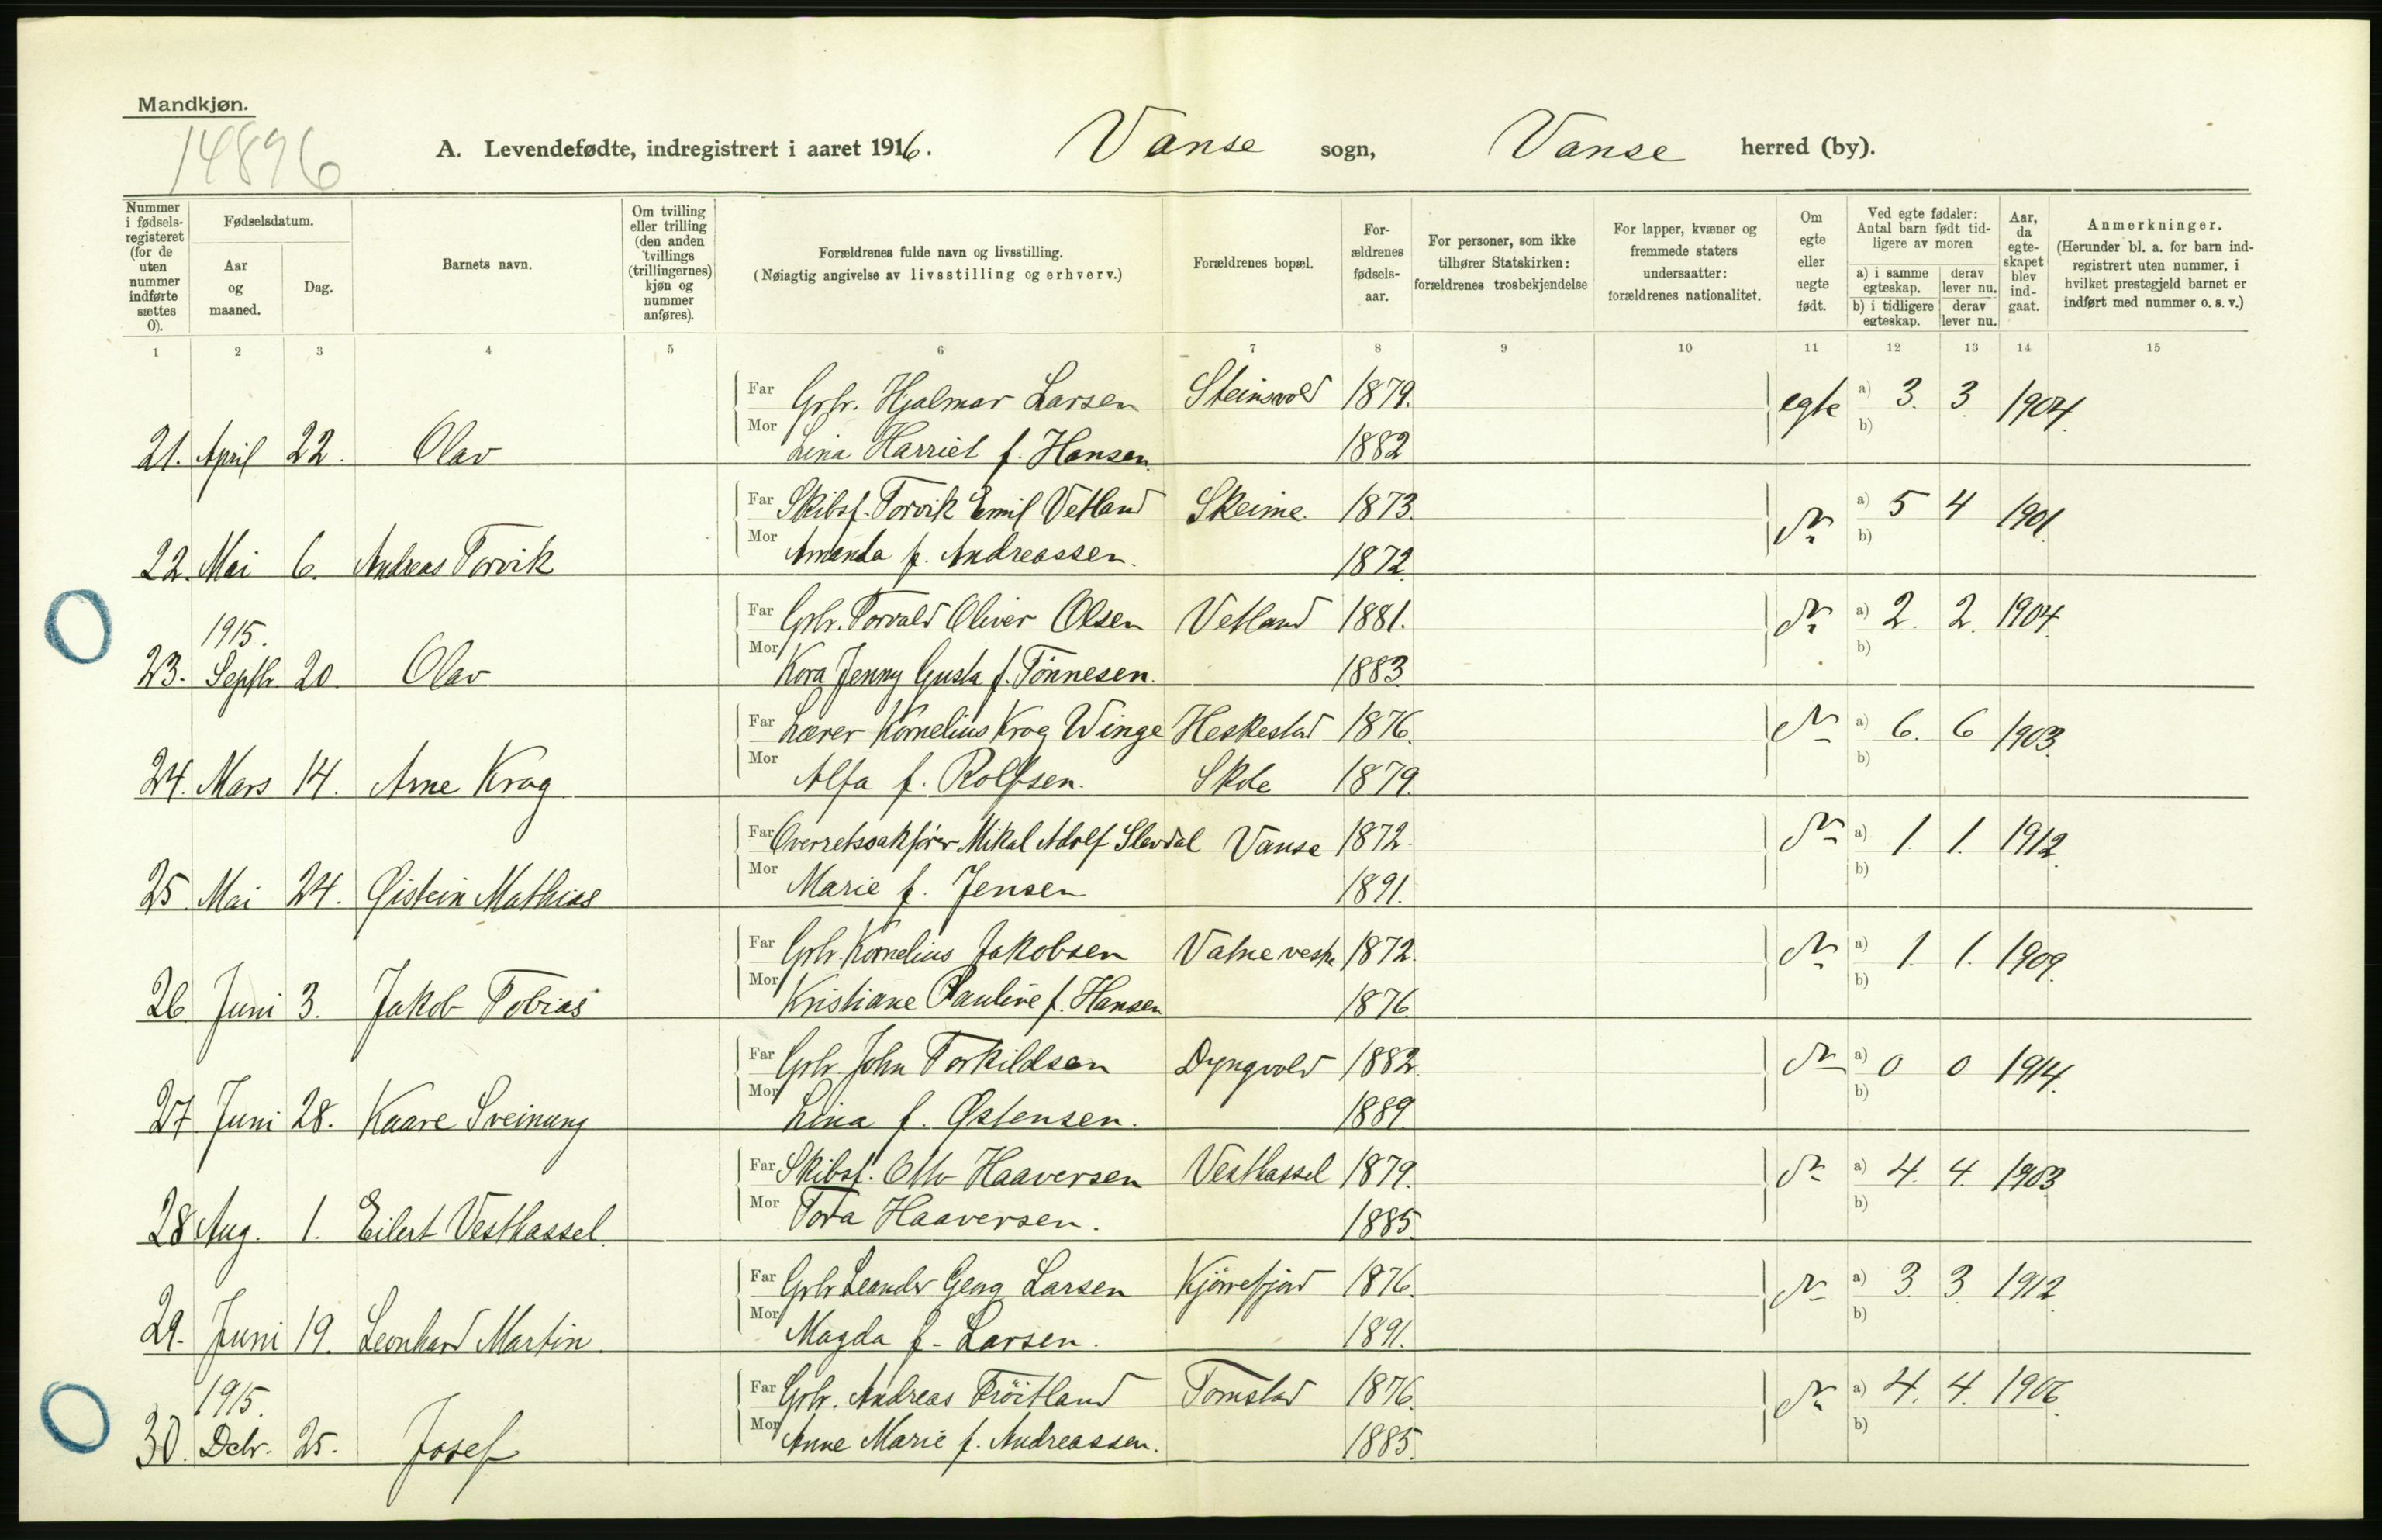 Mandkjøn.
14896
A. Levendefødte, indregistrert i aaret 1916. Vanse sogn, Vanse herred (by).
Nummer i fødselsregisteret (for de uten nummer indførte sættes 0).
Fødselsdatum.
Aar og maaned.
Dag.
Barnets navn.
Om tvilling eller trilling (den anden tvillings (trillingernes) kjøn og nummer anføres).
Forældrenes fulde navn og livsstilling.
(Nøiagtig angivelse av livsstilling og erhverv.)
Forældrenes bopæl.
Forældrenes fødselsaar.
For personer, som ikke tilhører Statskirken: forældrenes trosbekjendelse
For lapper, kvæner og fremmede staters undersaatter: forældrenes nationalitet.
Om egte eller uegte født.
Ved egte fødsler: Antal barn født tidligere av moren
a) i samme egteskap. derav lever nu.
b) i tidligere egteskap. derav lever nu.
Aar, da egteskapet blev indgaat.
Anmerkninger.
(Herunder bl. a. for barn indregistrert uten nummer, i hvilket prestegjeld barnet er indført med nummer o. s. v.)
1 2 3 4 5 6 7 8 9 10 11 12 13 14 15
Far Grbr. Hjalmar Larsen Steinsvold 1879. egte a) 3. 3. 1904.
21. April 22. Olav Mor Lina Harriet f. Hansen. 1882 b)
Far Skibsf. Torvik Emil Vetland Skeime. 1873. a) 5 4 1901
22. Mai 6. Andreas Torvik Mor Amanda f. Andreassen. 1872. b)
1915. Far Grbr. Torvald Oliver Olsen Vetland 1881. a) 2. 2. 1904.
23. Septbr. 20. Olav Mor Kora Jenny Gusta f. Tönnesen. 1883. b)
Far Lærer Kornelius Krog Winge Heskestad 1876. a) 6. 6 1903.
24. Mars 14. Arne Krog Mor Alfa f. Rolfsen. Skole 1879. b)
Far Overretssakfører Mikal Adolf Slevdal Vanse 1872. a) 1. 1. 1912.
25 Mai 24. Øistein Mathias Mor Marie f. Jensen 1891. b)
Far Grbr. Kornelius Jakobsen Vatne vestre 1872. a) 1. 1. 1909.
26 Juni 3. Jakob Tobias Mor Kristiane Pauline f. Hansen 1876. b)
Far Grbr. John Torkildsen Dyngvold 1882. a) 0 0 1914.
27 Juni 28. Kaare Sveinung Mor Lina f. Østensen. 1889. b)
Far Skibsf. Otto Haaversen Vesthassel 1879. a) 4. 4. 1903.
28 Aug. 1. Eilert Vesthassel. Mor Tora Haaversen. 1885. b)
Far Grbr Leander Georg Larsen Kjörrefjord 1876. a) 3. 3. 1912.
29. Juni 19. Leonhard Martin. Mor Magda f. Larsen. 1891. b)
1915. Far Grbr. Andreas Tröitland Tomstad 1876. a) 4. 4. 1906.
30. Debr. 25. Josef Mor Anne Marie f. Andreassen. 1885. b)